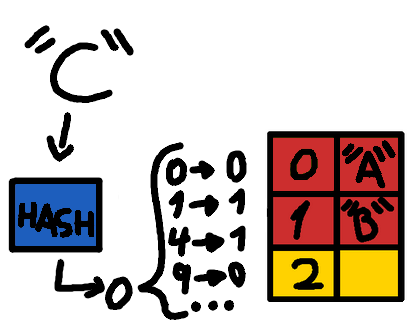 "C"
HASH
0
0 → 0
1 → 1
4 → 1
9 → 0
...
0 "A"
1 "B"
2